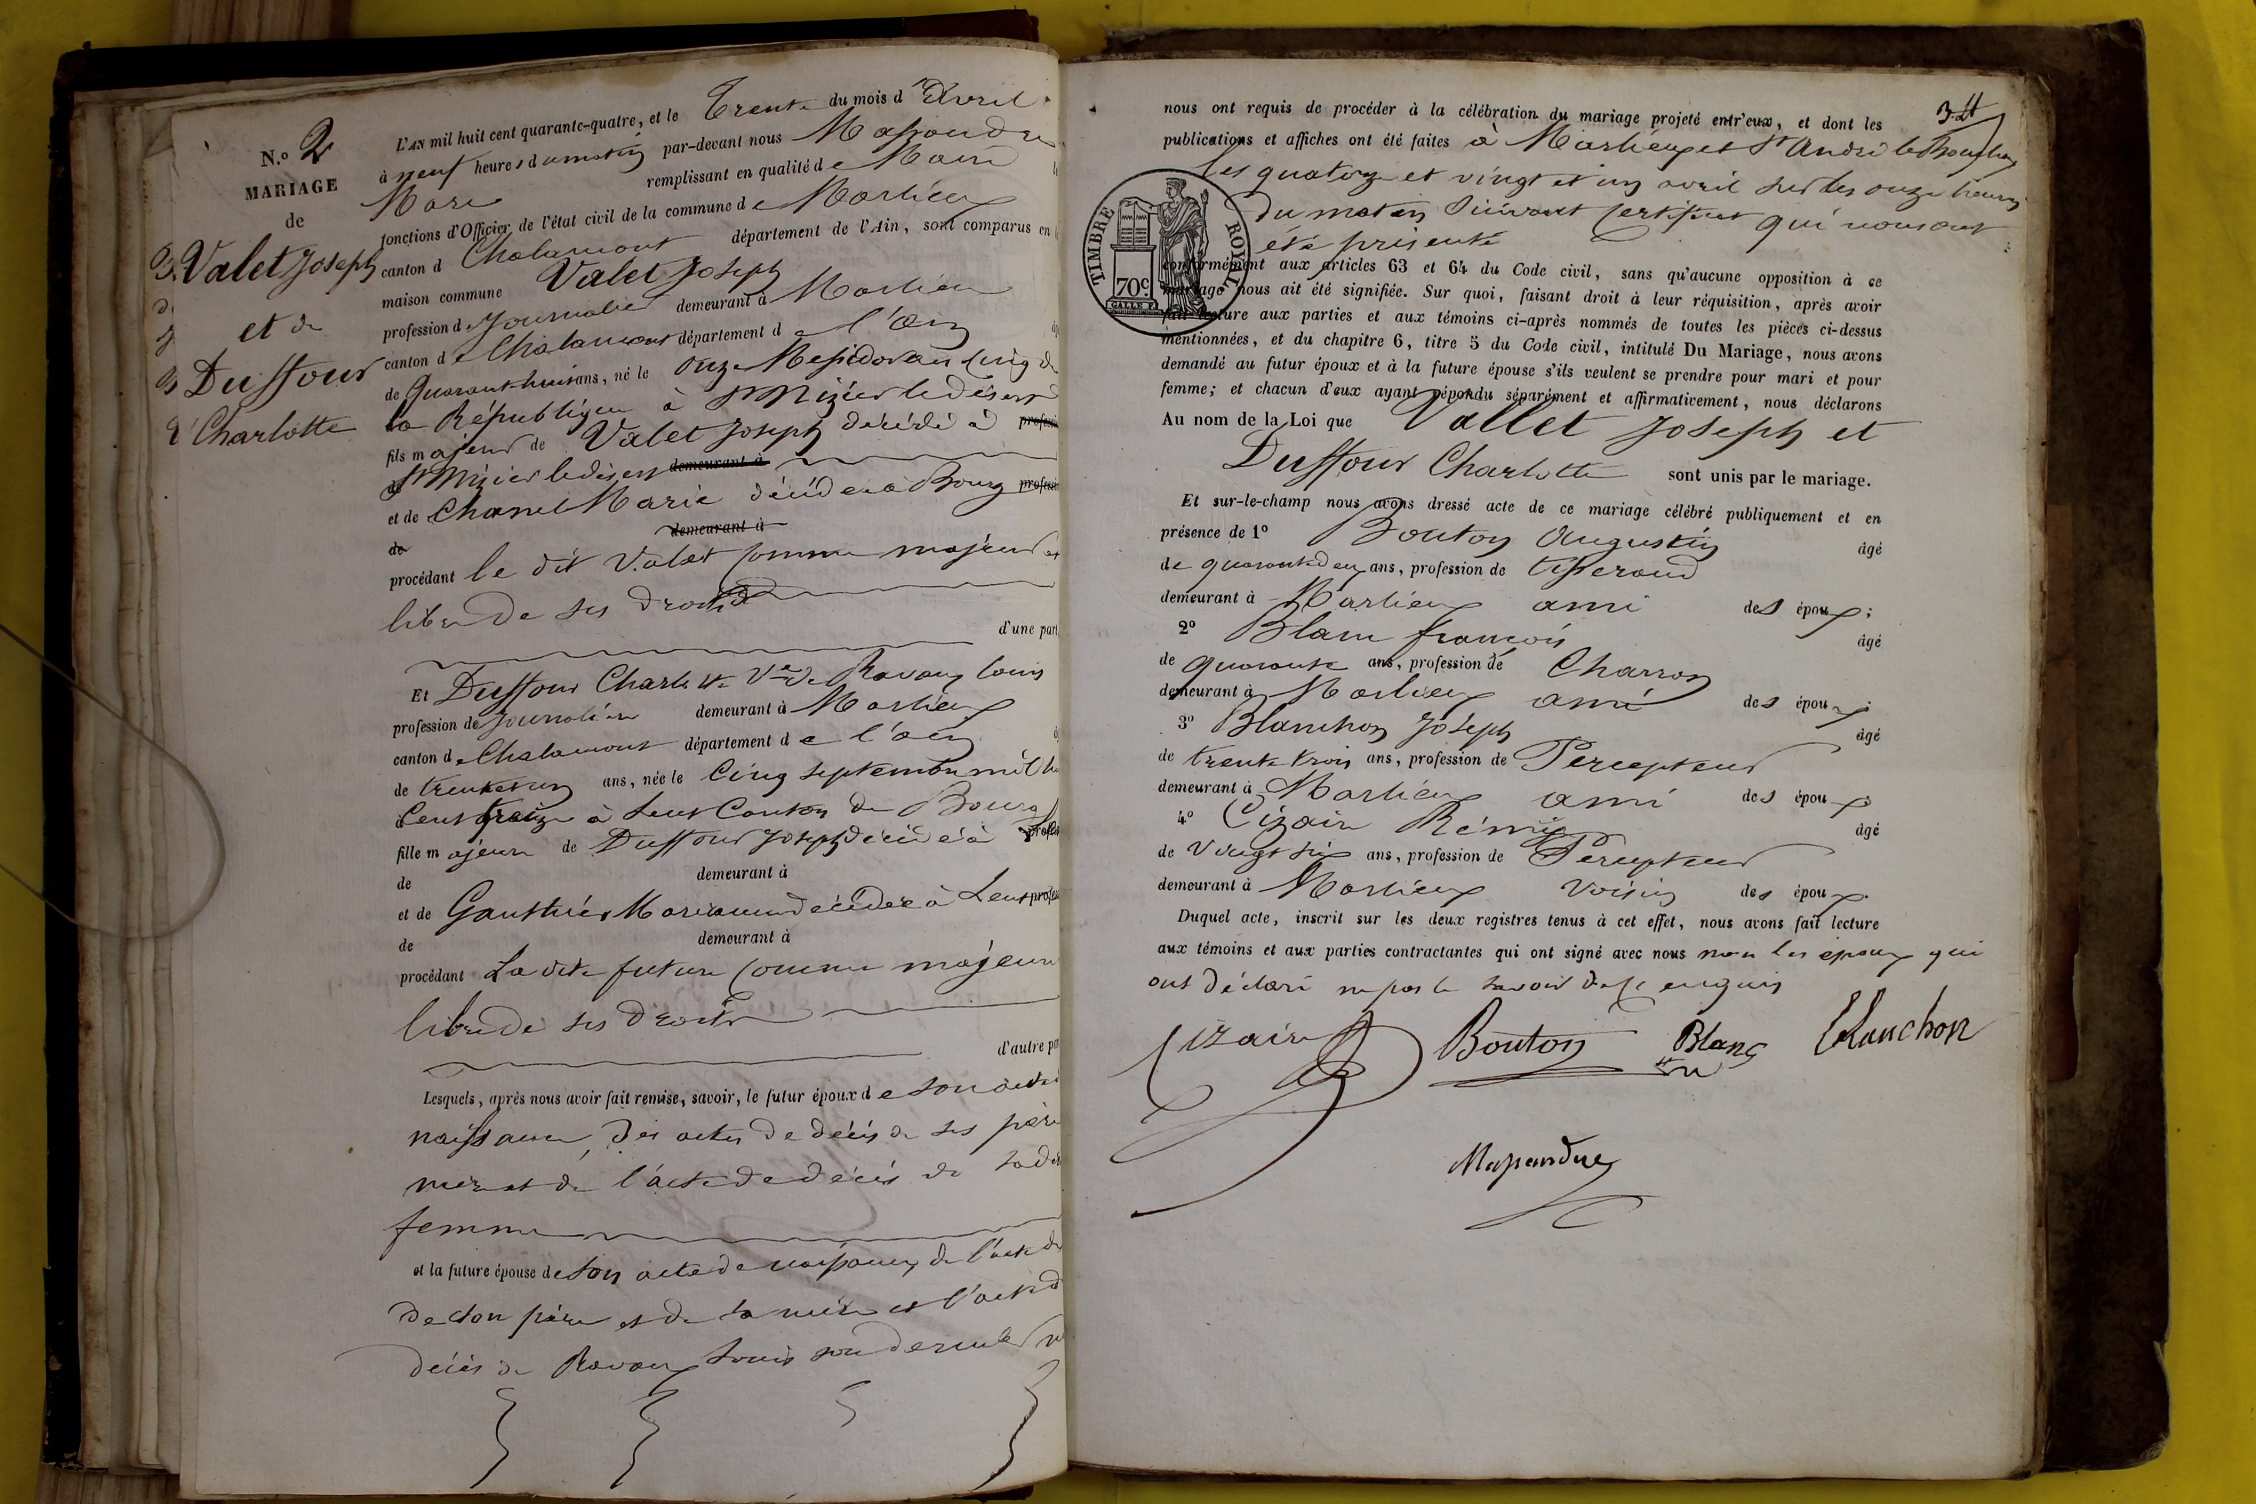 N.o 2
MARIAGE
de
Valet Joseph
et de
Duffour
Charlotte
L'AN mil huit cent quarante-quatre, et le Trente du mois d'Avril
à neuf heures du matin par-devant nous
Marie remplissant en qualité de Maire
fonctions d'Officier de l'état civil de la commune de Marlieux
canton d Chalamont département de l'Ain, sont comparus en
maison commune Valet Joseph
profession de Journalier demeurant à Marlieux
canton de Chalamont département de l'Ain
de Quarante huit ans, né le onze Messidor an cinq de
la République à St Nizier le désert
fils majeur de Valet Joseph décédé à
St Nizier le désert demeurant à
et de Chanel Marie décédée à Bourg
de demeurant à
procédant le dit Valet comme majeur et
libre de ses droits
d'une part
Et Duffour Charlotte Ve de Ravoux Louis
profession de journalière demeurant à Marlieux
canton de Chalamont département de l'Ain
de trente et un ans, née le Cinq septembre mil
Cent treize à Lent Canton de Bourg
fille majeure de Duffour Joseph décédé à
de demeurant à
et de Gauthier Marianne décédée à Lent
de demeurant à
procédant La dite future comme majeure
libre de ses droits
d'autre
Lesquels, après nous avoir fait remise, savoir, le futur époux de son acte
naissance, des actes de décès de ses père
mère et de l'acte de décès de sa
femme
et la future épouse de son acte de naissance, de l'acte de
de son père et de sa mère et l'acte de
décès de Ravoux Louis son dernier
34
nous ont requis de procéder à la célébration du mariage projeté entr'eux, et dont les
publications et affiches ont été faites à Marlieux et St André le Bouchoux
les quatorze et vingt et un avril sur les onze heures
du matin suivant certificat qui nous ont
été présenté
TIMBRE ROYAL
70c
conformément aux articles 63 et 64 du Code civil, sans qu'aucune opposition à ce
mariage nous ait été signifiée. Sur quoi, faisant droit à leur réquisition, après avoir
fait lecture aux parties et aux témoins ci-après nommés de toutes les pièces ci-dessus
mentionnées, et du chapitre 6, titre 5 du Code civil, intitulé Du Mariage, nous avons
demandé au futur époux et à la future épouse s'ils veulent se prendre pour mari et pour
femme; et chacun d'eux ayant répondu séparément et affirmativement, nous déclarons
Au nom de la Loi que Vallet Joseph et
Duffour Charlotte sont unis par le mariage.
Et sur-le-champ nous avons dressé acte de ce mariage célébré publiquement et en
présence de 1o Bouton Augustin âgé
de quarante deux ans, profession de tisserand
demeurant à Marlieux ami des époux;
2o Blanc françois âgé
de quarante ans, profession de Charron
demeurant à Marlieux ami des époux;
3o Blanchon Joseph âgé
de trente trois ans, profession de Percepteur
demeurant à Marlieux ami des époux
4o Cizaire Rémy âgé
de vingt six ans, profession de Percepteur
demeurant à Marlieux voisin des époux.
Duquel acte, inscrit sur les deux registres tenus à cet effet, nous avons fait lecture
aux témoins et aux parties contractantes qui ont signé avec nous non les époux qui
ont déclaré ne pas le savoir de ce enquis
Cizaire Bouton Blanc Blanchon